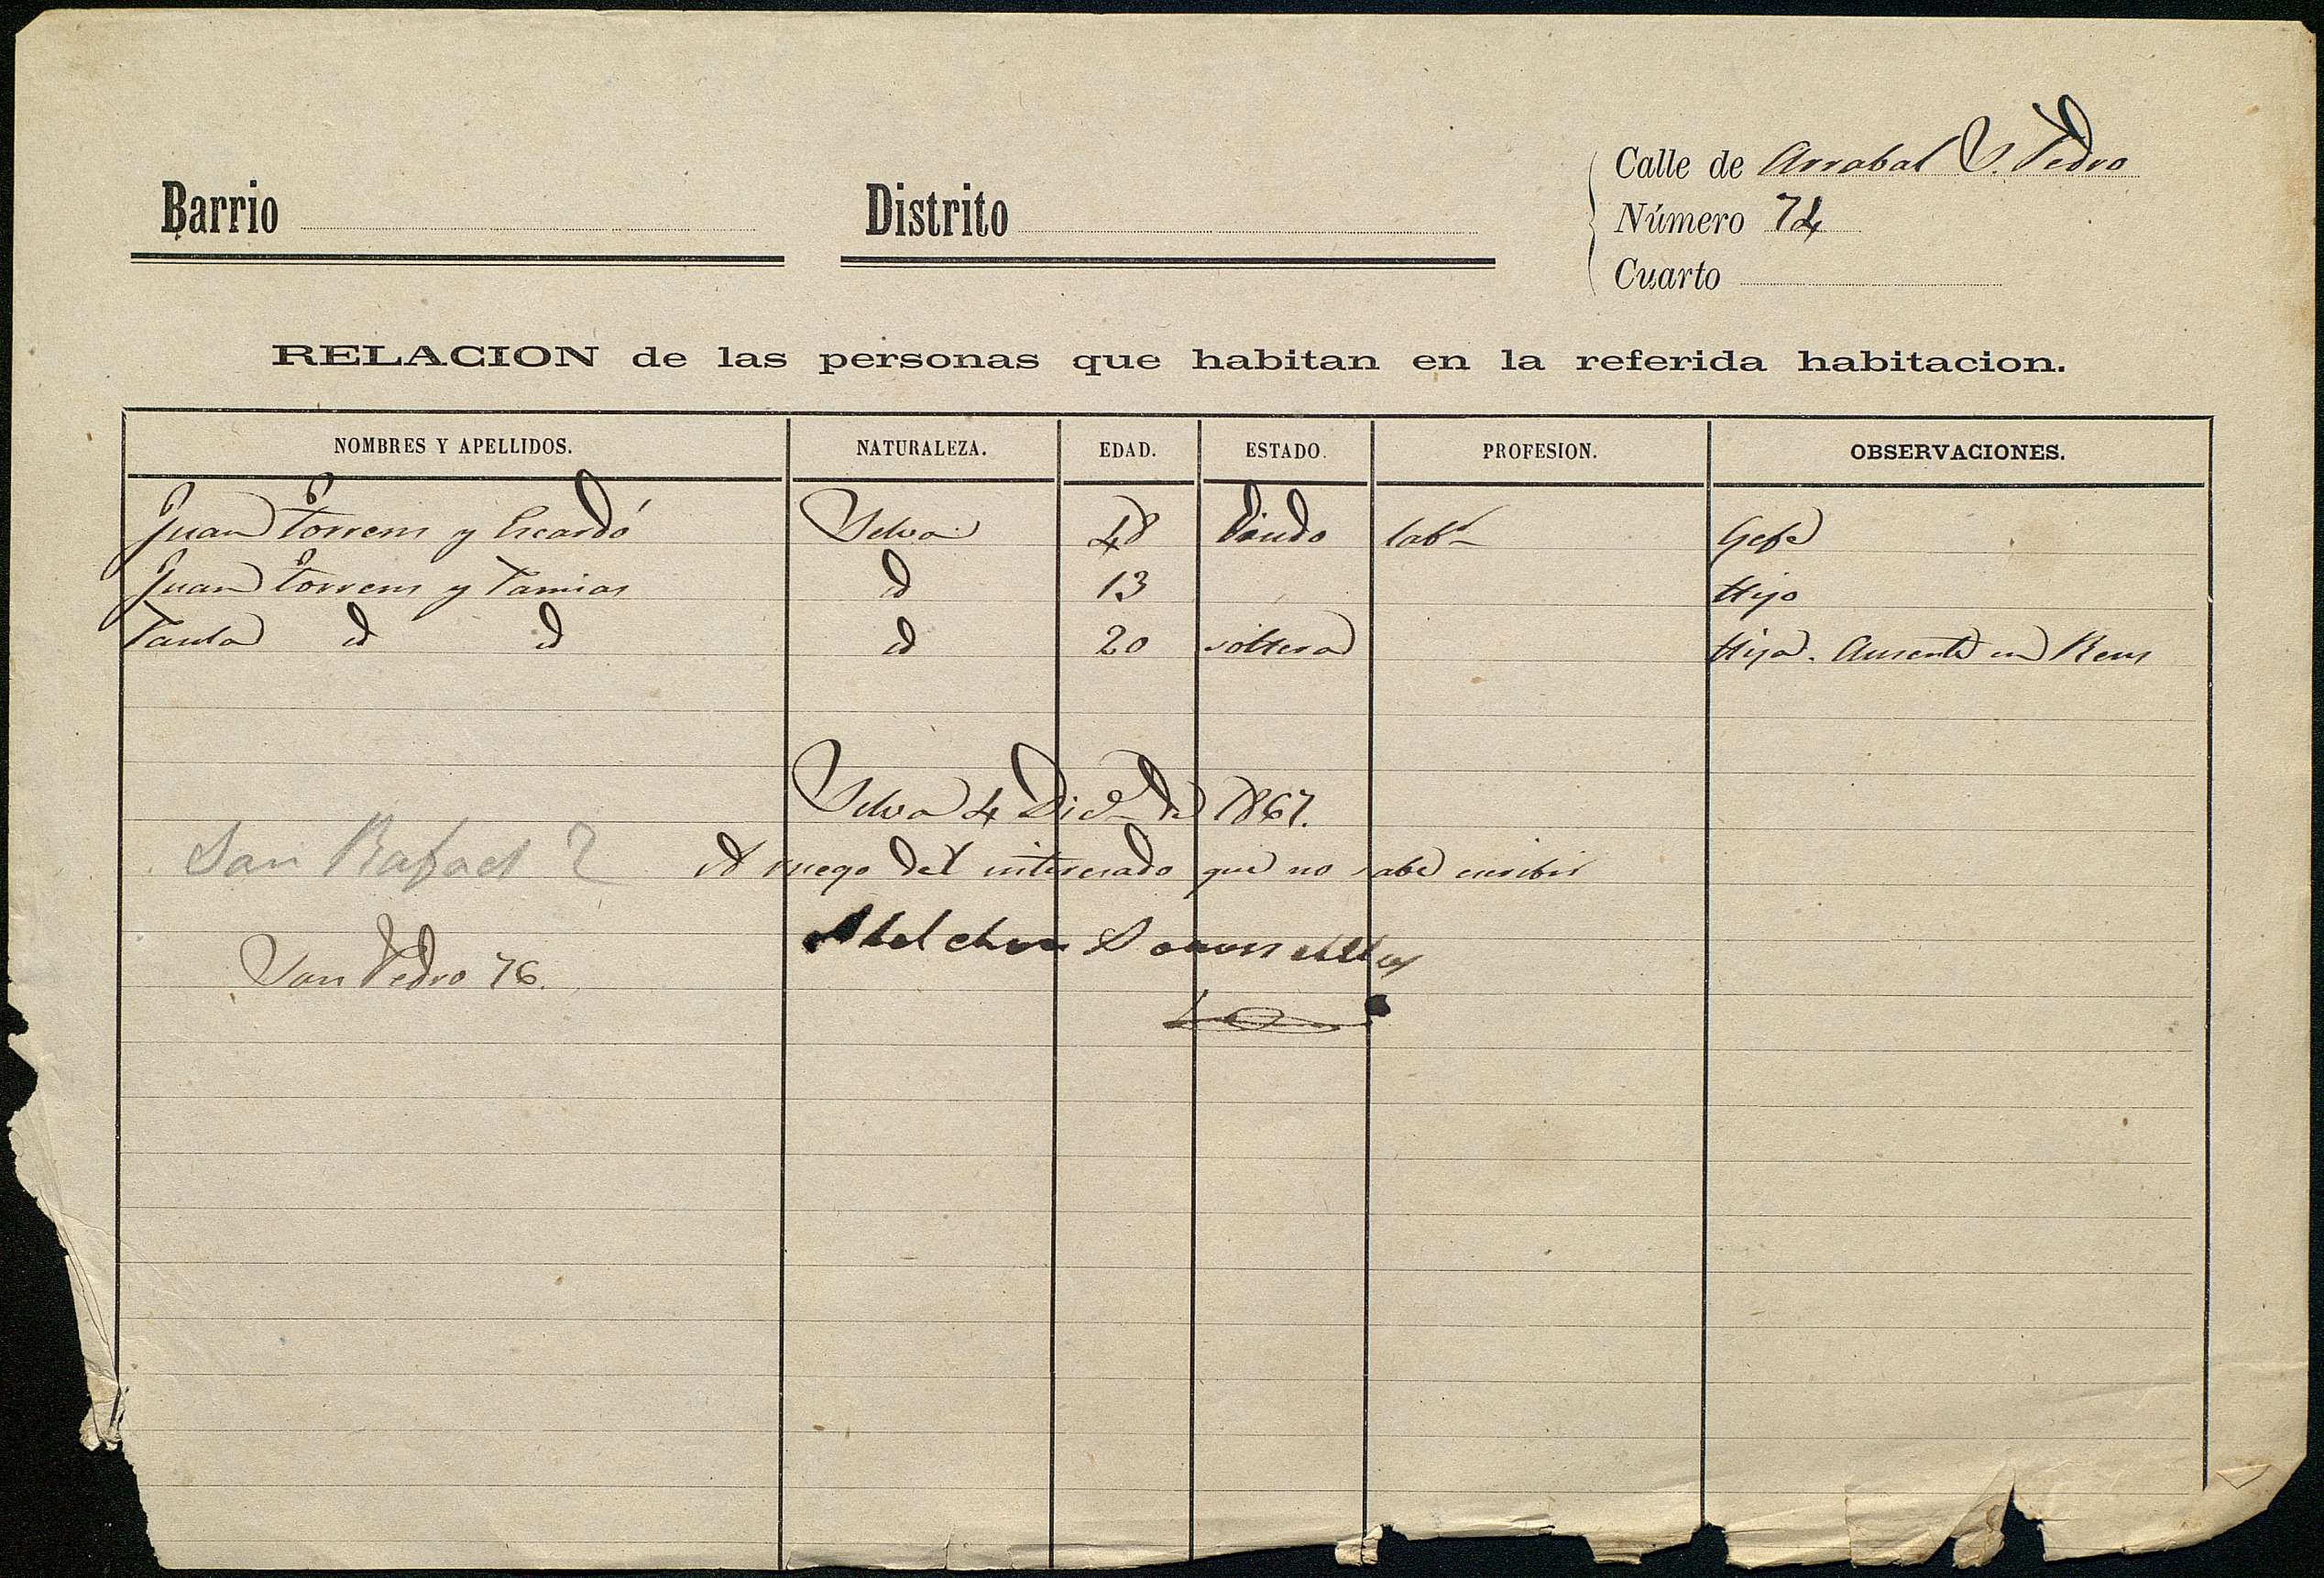 Calle de Arrabal S. Pedro
Barrio Distrito Número 74
Cuarto
RELACION de las personas que habitan en la referida habitacion.
NOMBRES Y APELLIDOS. NATURALEZA. EDAD. ESTADO. PROFESION. OBSERVACIONES.
Juan Torrens y Escardó Selva 48 Viudo labr Gefe
Juan Torrens y Pamias id 13 Hijo
Paula id id id 20 soltera Hija. Ausente en Reus
Selva 4 Dice de 1867.
San Rafael 2 A ruego del interesado que no sabe escribir
Melchor
San Pedro 76.